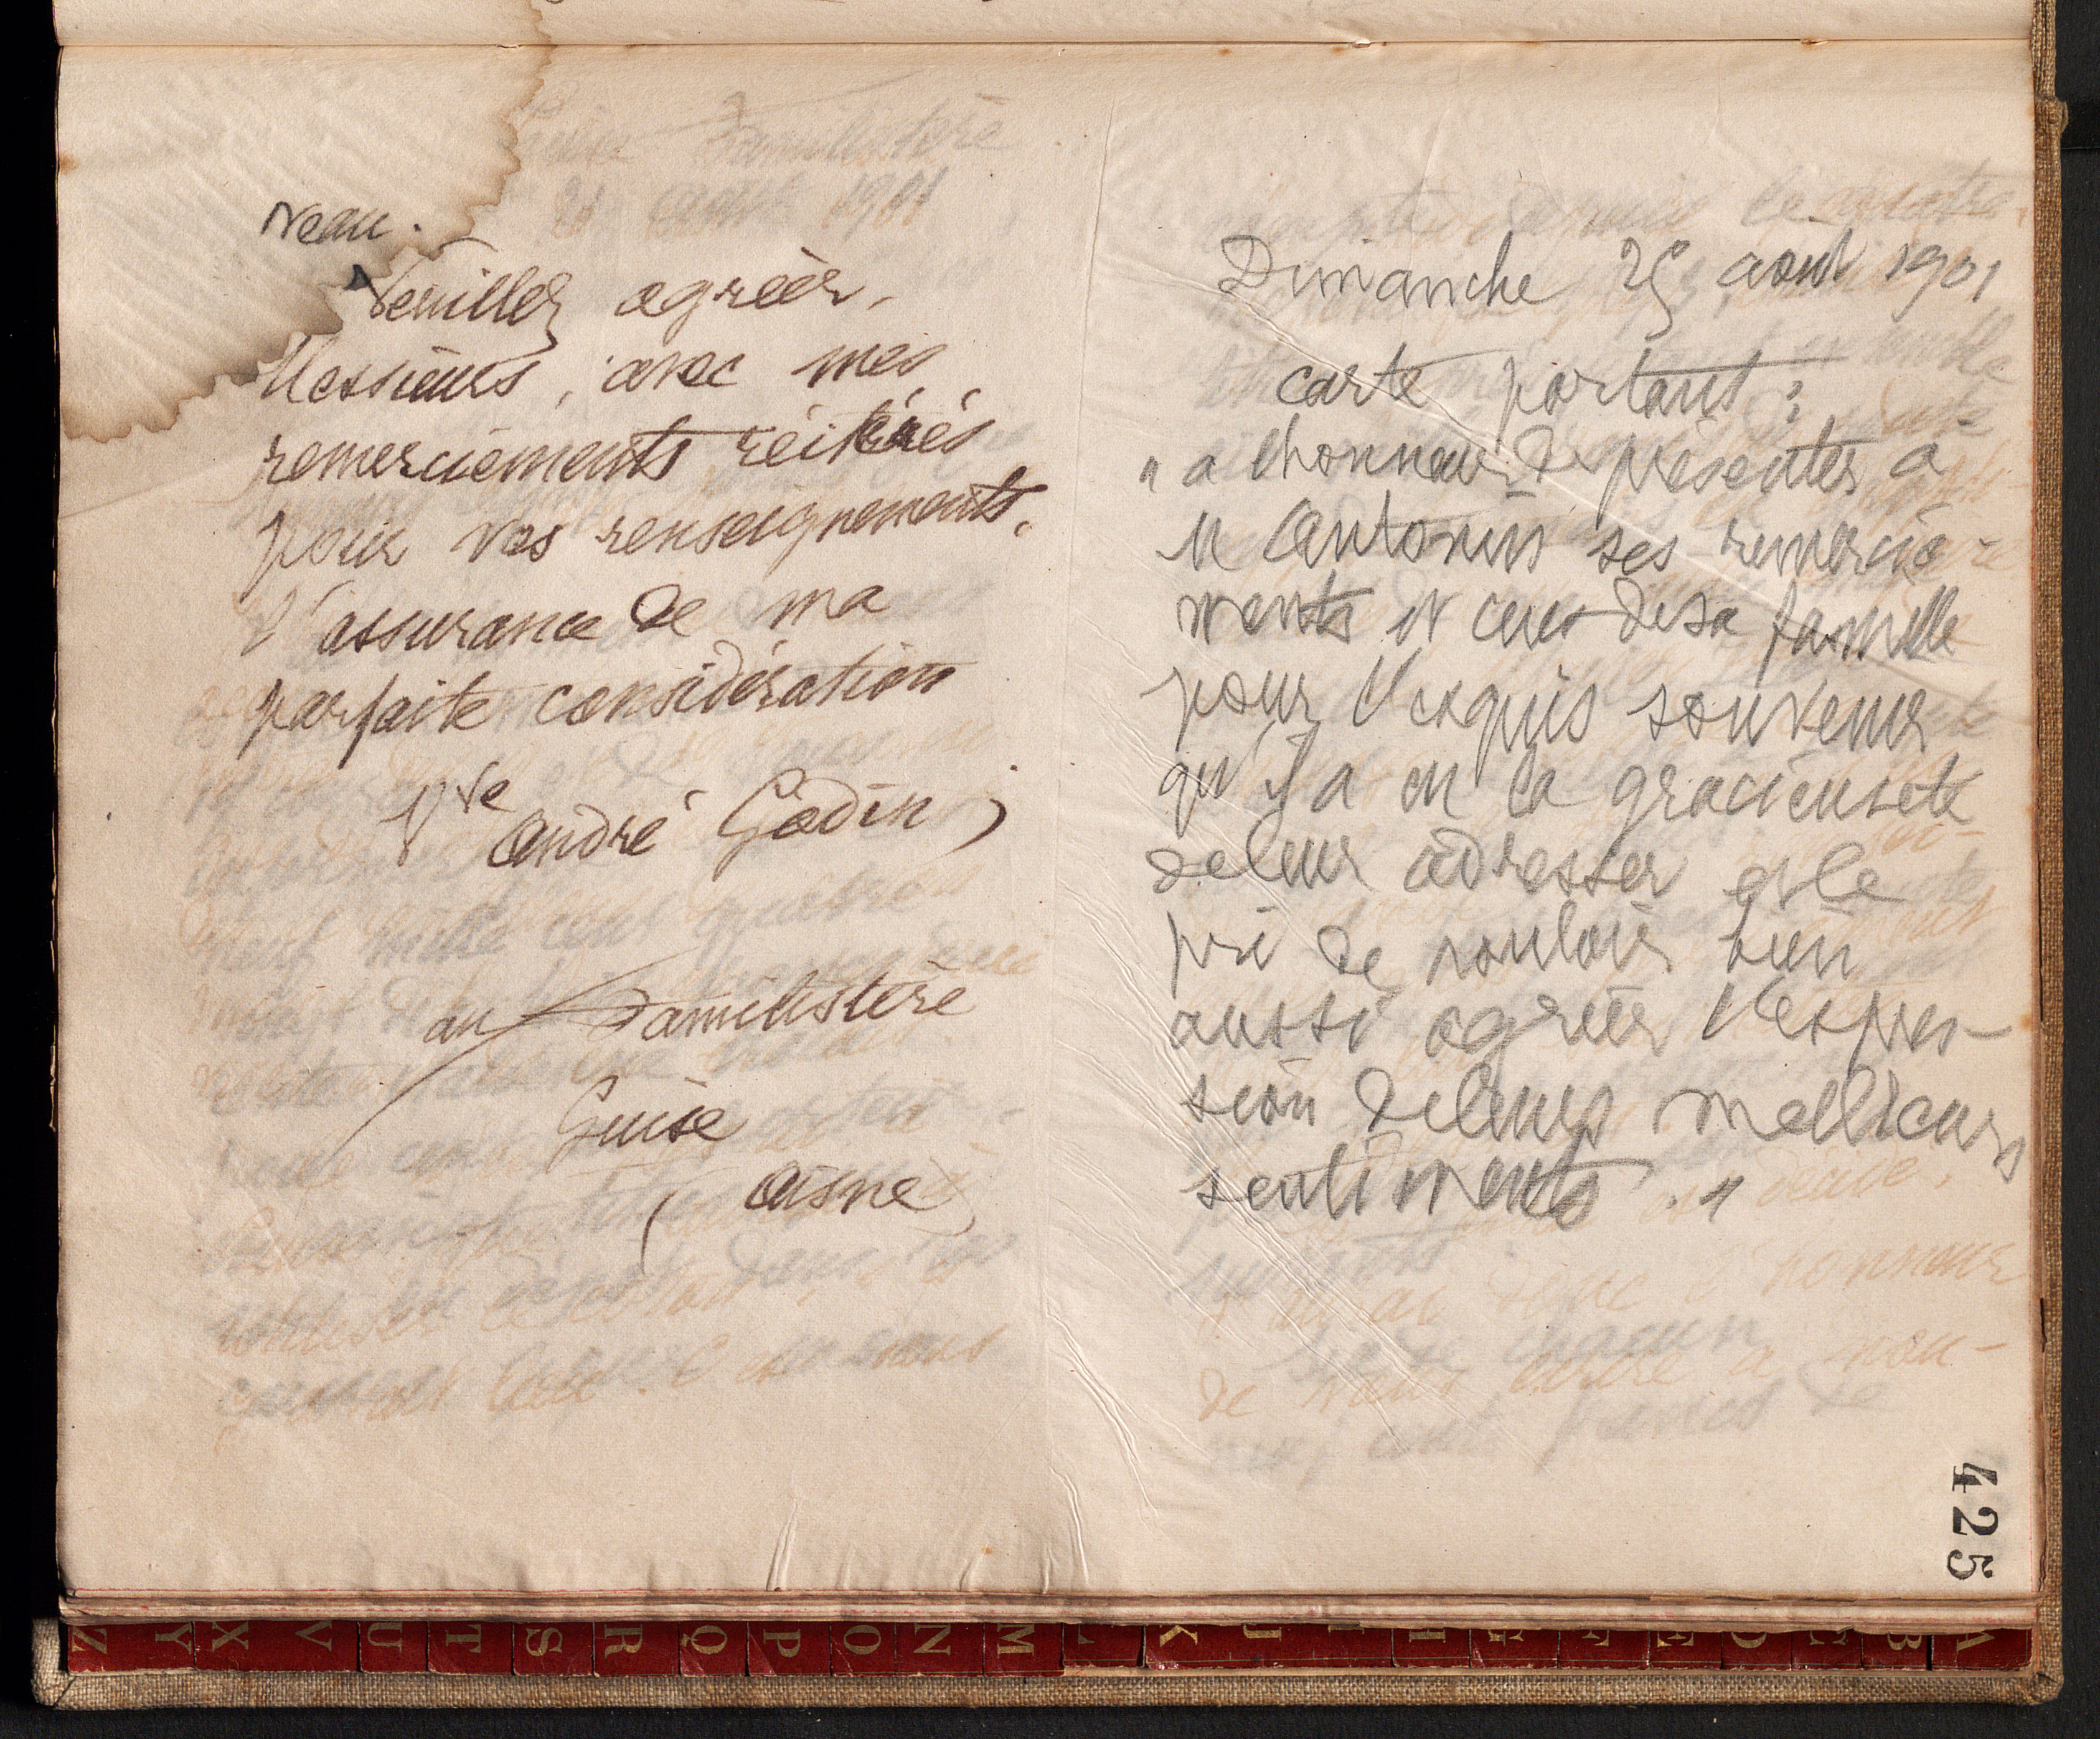 veau.
Veuillez agréer,
Messieurs, avec mes
remerciements réitérés
pour vos renseignements,
l'assurance de ma
parfaite considération
Vve André Godin
au Familistère
Guise
(Aisne)
Dimanche 25 août 1901
carte portant :
" a l'honneur de présenter à
M Antonin ses remercie-
ments et ceux de sa famille
pour l'exquis souvenir
qu'il a eu la gracieuseté
de leur adresser et le
prie de vouloir bien
aussi agréer l'expres-
sion de leurs meilleurs
sentiments. "
425
Z Y X V U T S R Q P O N M L K J I H G F E D C B A